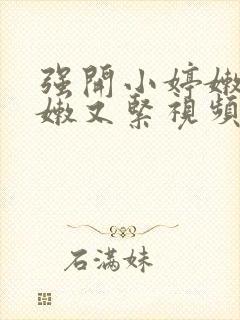 强開小婷嫩
嫩又緊視頻
石满妹